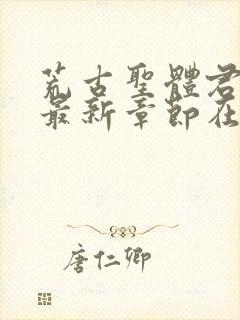 荒古聖體君
最新章節在
唐仁卿